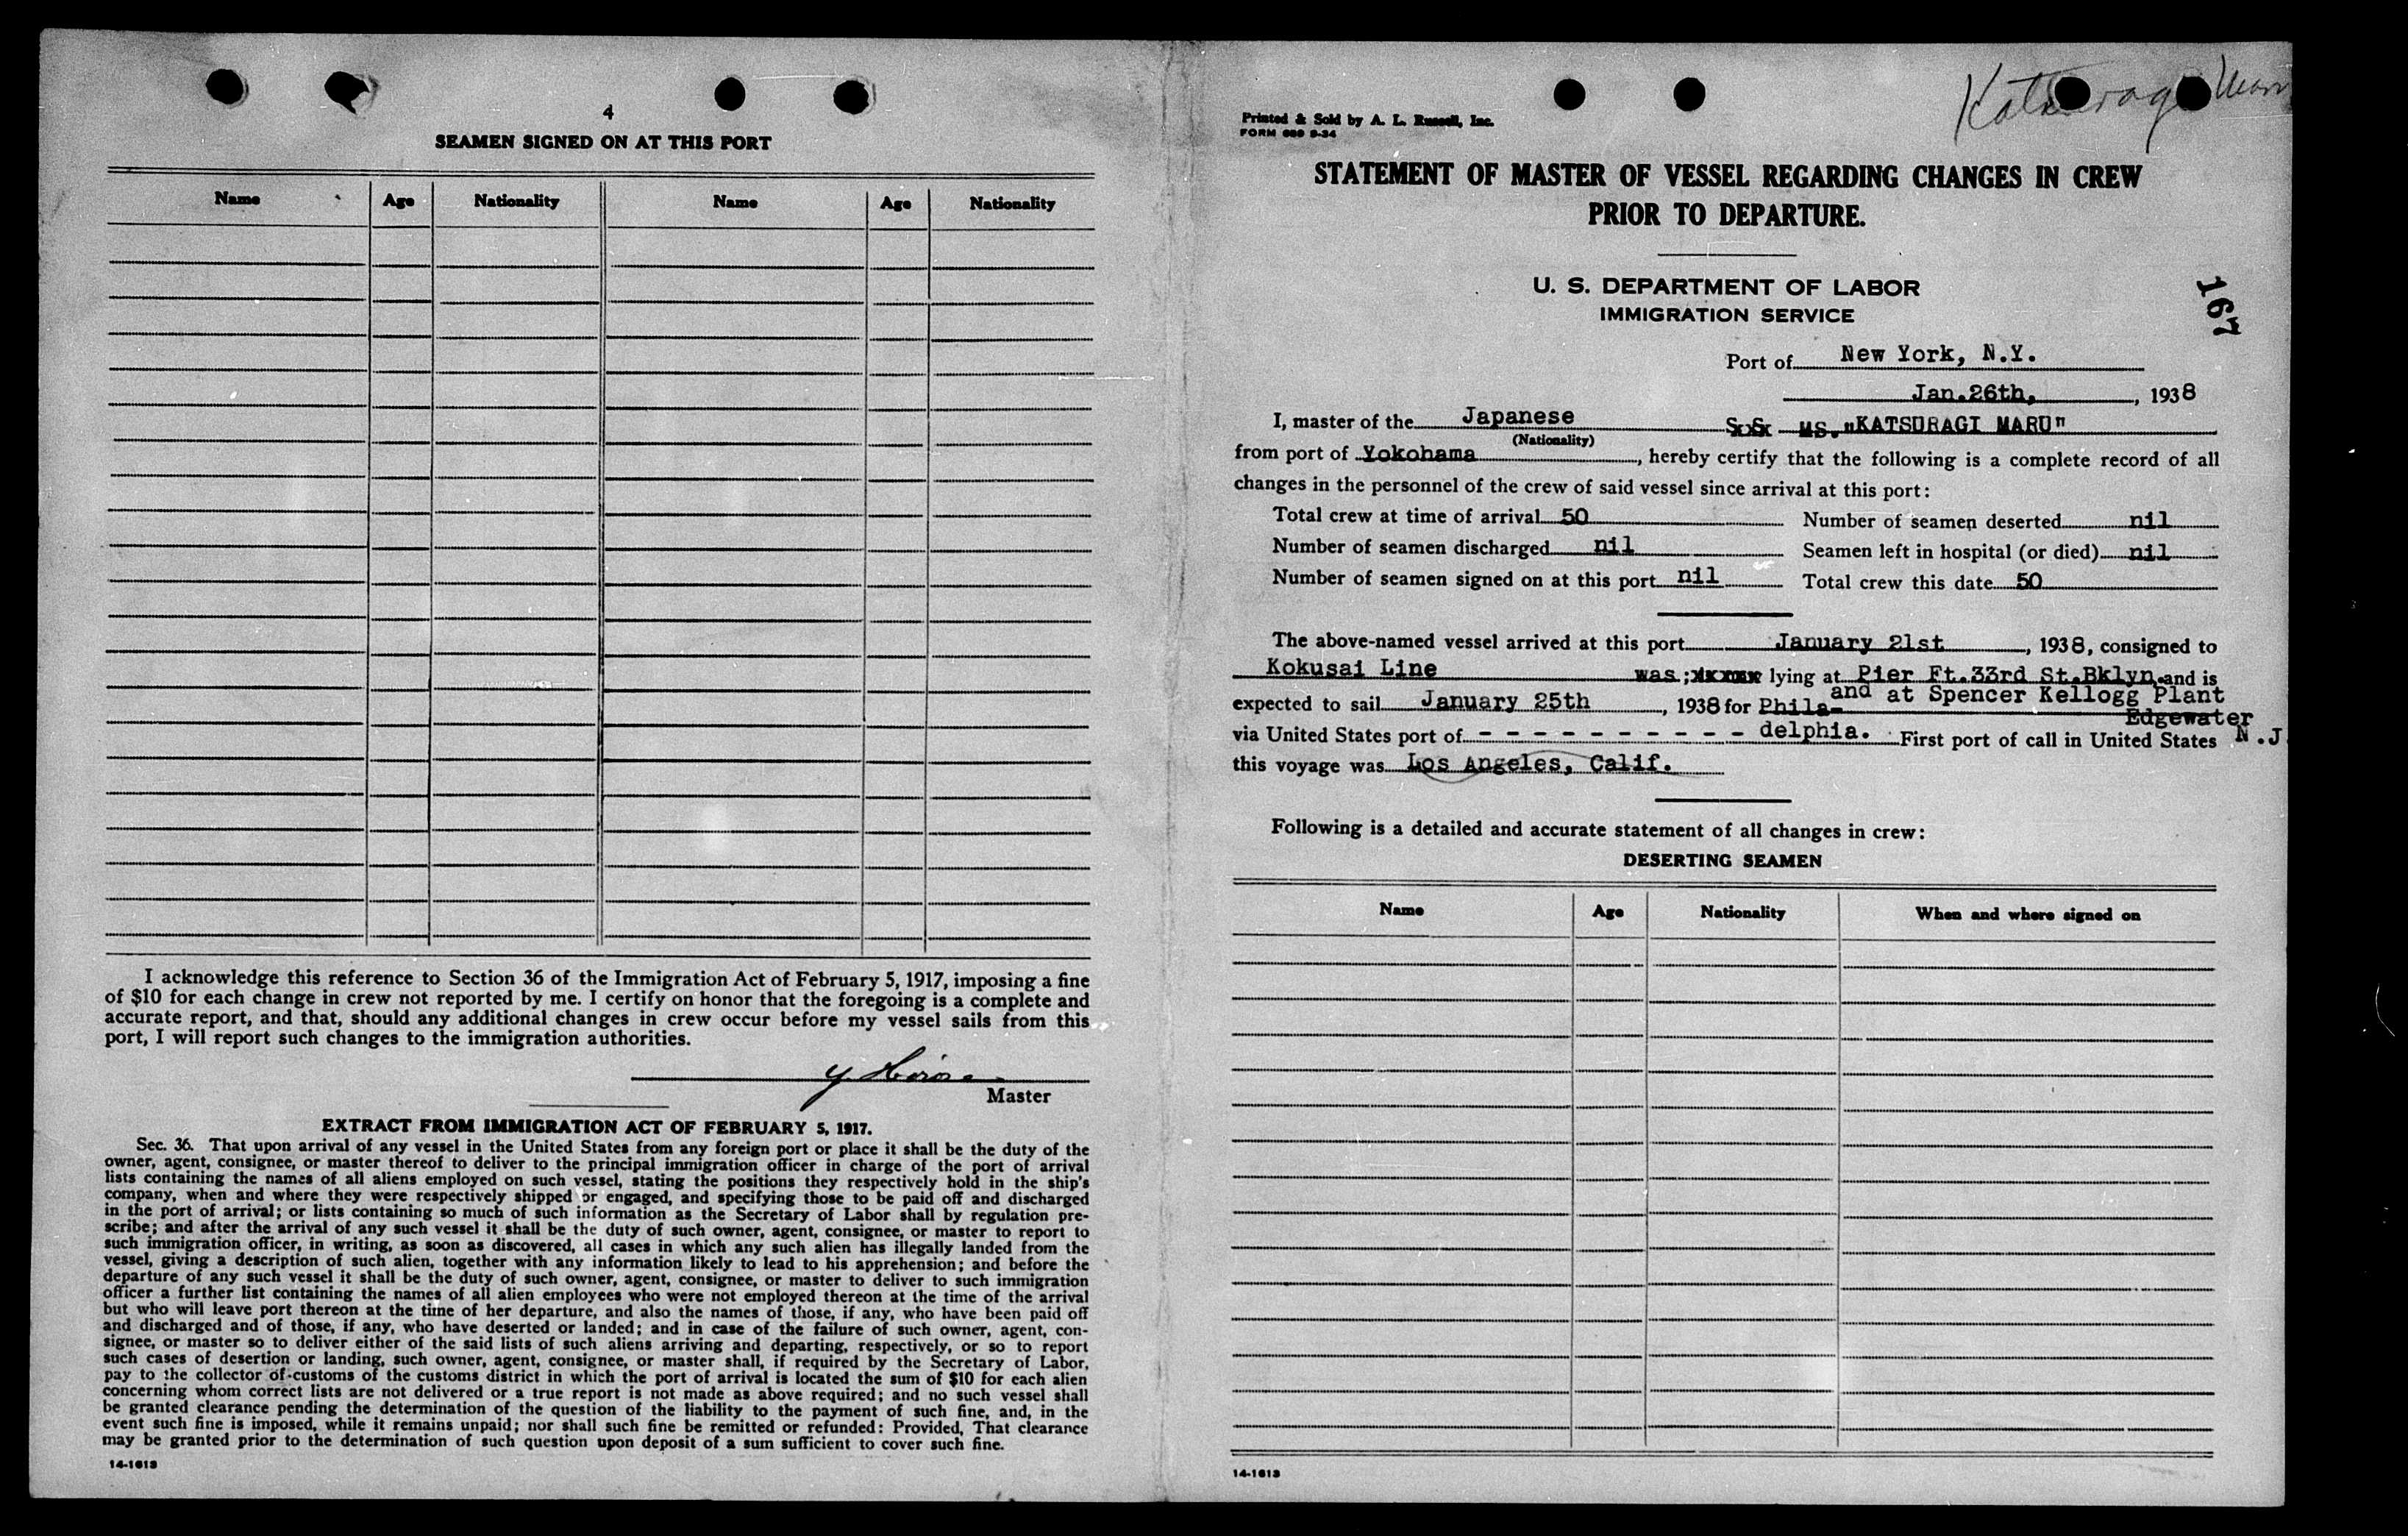 4
SEAMEN SIGNED ON AT THIS PORT
Name Age Nationality Name Age Nationality
I acknowledge this reference to Section 36 of the Immigration Act of February 5, 1917, imposing a fine
of $10 for each change in crew not reported by me. I certify on honor that the foregoing is a complete and
accurate report, and that, should any additional changes in crew occur before my vessel sails from this
port, I will report such changes to the immigration authorities.
Master
EXTRACT FROM IMMIGRATION ACT OF FEBRUARY 5, 1917.
Sec. 36. That upon arrival of any vessel in the United States from any foreign port or place it shall be the duty of the
owner, agent, consignee, or master thereof to deliver to the principal immigration officer in charge of the port of arrival
lists containing the names of all aliens employed on such vessel, stating the positions they respectively hold in the ship's
company, when and where they were respectively shipped or engaged, and specifying those to be paid off and discharged
in the port of arrival; or lists containing so much of such information as the Secretary of Labor shall by regulation pre-
scribe; and after the arrival of any such vessel it shall be the duty of such owner, agent, consignee, or master to report to
such immigration officer, in writing, as soon as discovered, all cases in which any such alien has illegally landed from the
vessel, giving a description of such alien, together with any information likely to lead to his apprehension; and before the
departure of any such vessel it shall be the duty of such owner, agent, consignee, or master to deliver to such immigration
officer a further list containing the names of all alien employees who were not employed thereon at the time of the arrival
but who will leave port thereon at the time of her departure, and also the names of those, if any, who have been paid off
and discharged and of those, if any, who have deserted or landed; and in case of the failure of such owner, agent, con-
signee, or master so to deliver either of the said lists of such aliens arriving and departing, respectively, or so to report
such cases of desertion or landing, such owner, agent, consignee, or master shall, if required by the Secretary of Labor,
pay to the collector of customs of the customs district in which the port of arrival is located the sum of $10 for each alien
concerning whom correct lists are not delivered or a true report is not made as above required; and no such vessel shall
be granted clearance pending the determination of the question of the liability to the payment of such fine, and, in the
event such fine is imposed, while it remains unpaid; nor shall such fine be remitted or refunded: Provided, That clearance
may be granted prior to the determination of such question upon deposit of a sum sufficient to cover such fine.
14-1613
Katsuragi Maru
Printed & Sold by A. L. Russell, Inc.
FORM 689 9-34
STATEMENT OF MASTER OF VESSEL REGARDING CHANGES IN CREW
PRIOR TO DEPARTURE.
U. S. DEPARTMENT OF LABOR
IMMIGRATION SERVICE
167
Port of New York, N.Y.
Jan.26th, , 1938
I, master of the Japanese S.S. MS."KATSURAGI MARU"
(Nationality)
from port of Yokohama , hereby certify that the following is a complete record of all
changes in the personnel of the crew of said vessel since arrival at this port:
Total crew at time of arrival 50 Number of seamen deserted nil
Number of seamen discharged nil Seamen left in hospital (or died) nil
Number of seamen signed on at this port nil Total crew this date 50
The above-named vessel arrived at this port January 21st , 1938, consigned to
Kokusai Line was ; lying at Pier Ft.33rd St.Bklyn.and is
and at Spencer Kellogg Plant
expected to sail January 25th , 1938 for Phila-
Edgewater
via United States port of - - - - - - - - - - delphia. First port of call in United States N.J
this voyage was Los Angeles, Calif.
Following is a detailed and accurate statement of all changes in crew:
DESERTING SEAMEN
Name Age Nationality When and where signed on
14-1613